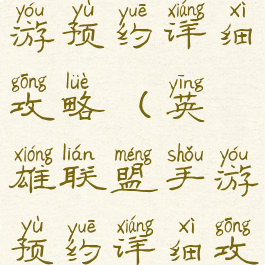 yóu yù yuē xiáng xì
游预约详细
gōng lüè yīng
攻略(英
xióng lián méng shǒu yóu
雄联盟手游
yù yuē xiáng xì gōng
预约详细攻